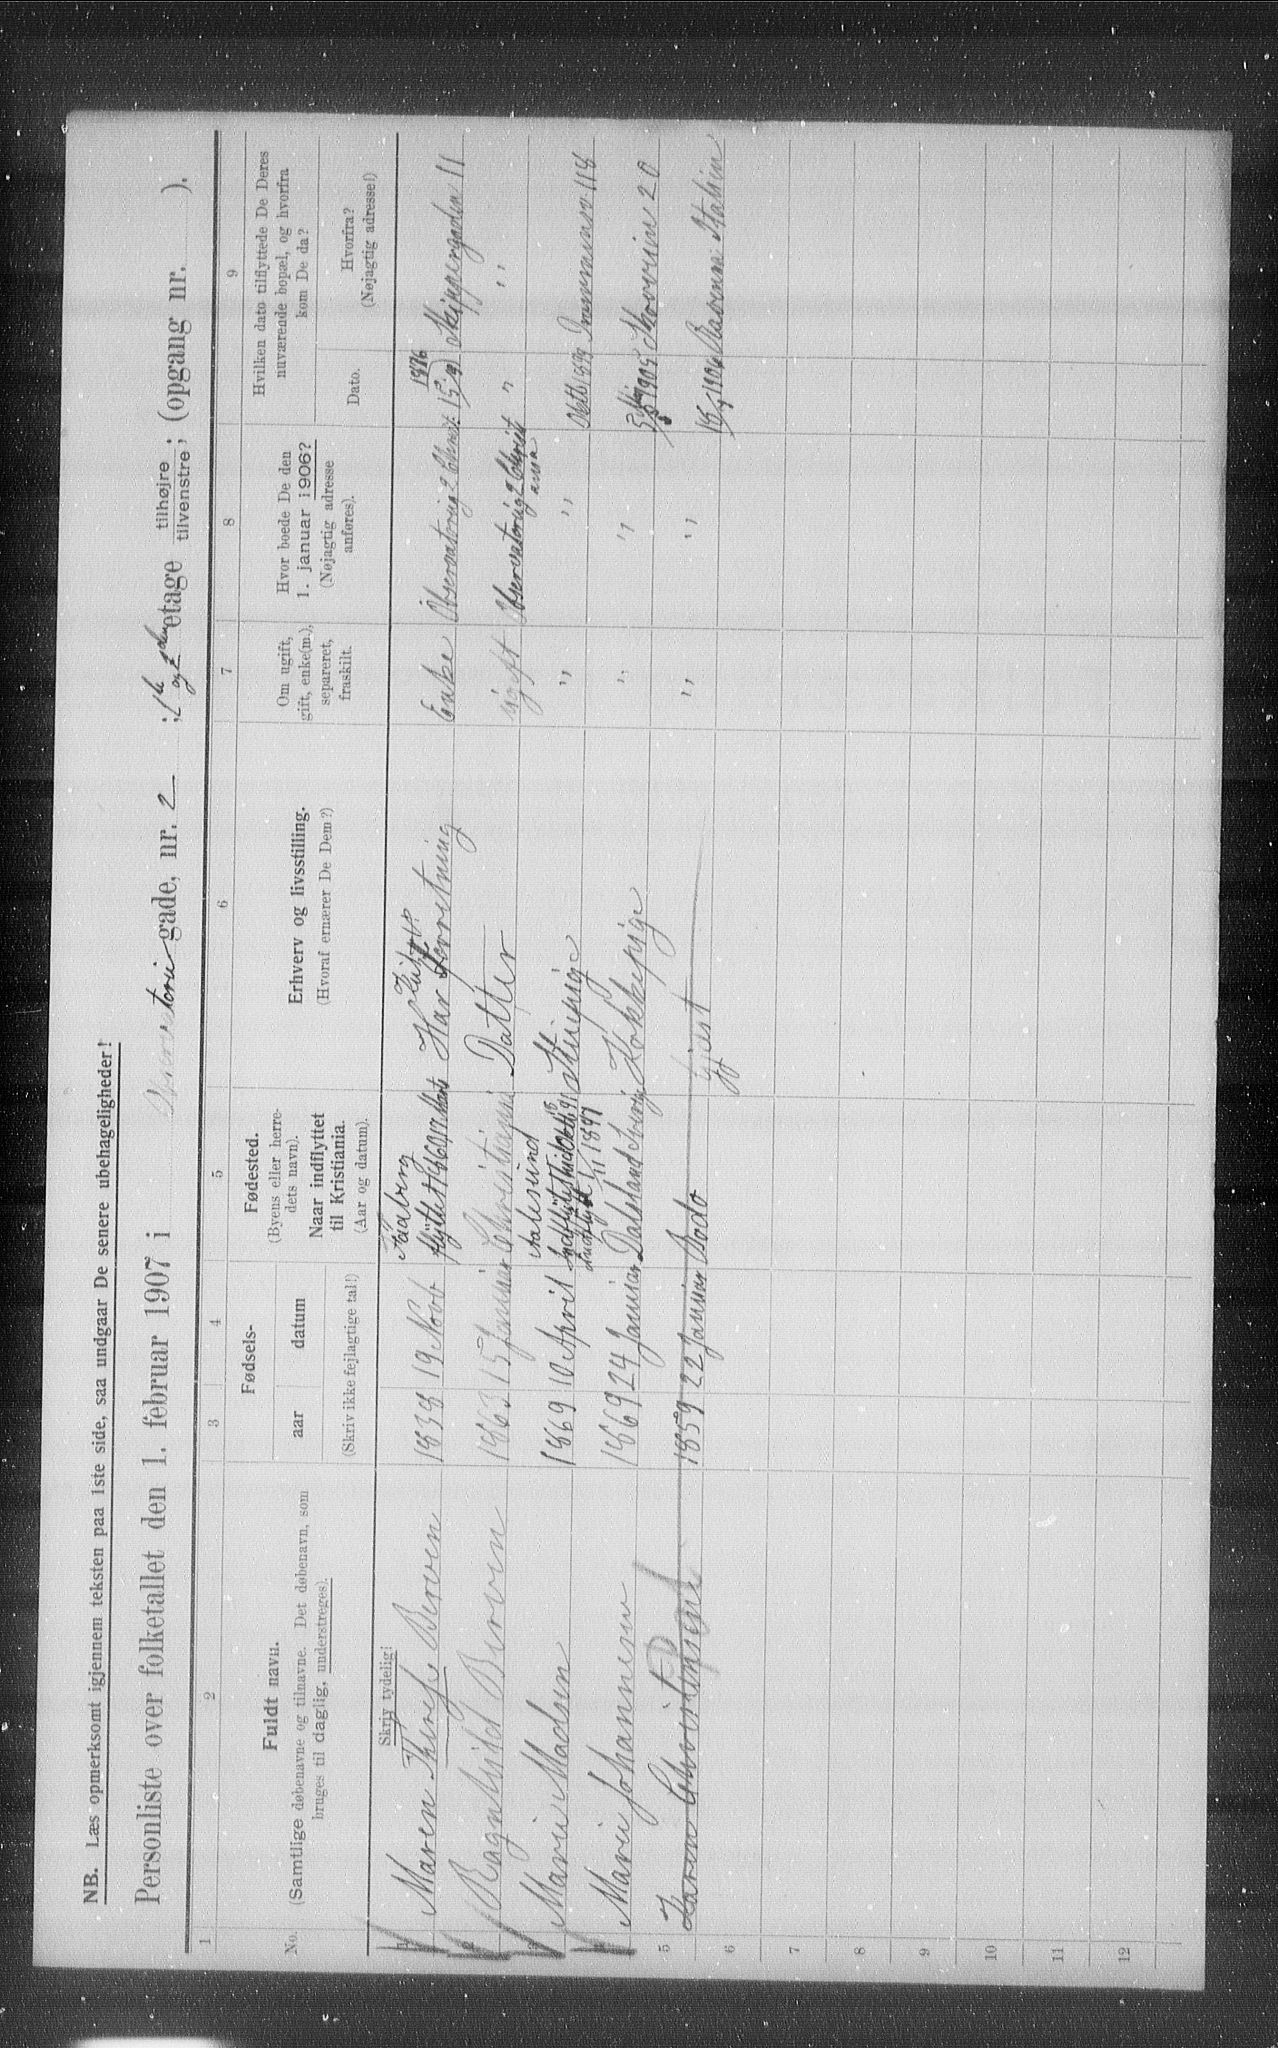 NB. Læs opmerksomt igjennem teksten paa 1ste side, saa undgaar De senere ubehageligheder!
Personliste over folketallet den 1. februar 1907 i Observatorie gade, nr. 2 ; 1ste og 2den etage tilhøjre tilvenstre; (opgang nr. ).
1 2 3 4 5 6 7 8 9
No.
Fuldt navn.
(Samtlige døbenavne og tilnavne. Det døbenavn, som
bruges til daglig, understreges).
Fødsels-
aar datum
(Skriv ikke fejlagtige tal!)
Fødested.
(Byens eller herre-
dets navn).
Naar indflyttet
til Kristiania.
(Aar og datum).
Erhverv og livsstilling.
(Hvoraf ernærer De Dem?)
Om ugift,
gift, enke(m.),
separeret,
fraskilt.
Hvor boede De den
1. januar 1906?
(Nøjagtig adresse
anføres).
Hvilken dato tilflyttede De Deres
nuværende bopæl, og hvorfra
kom De da?
Dato.
Hvorfra?
(Nøjagtig adresse!)
Skriv tydelig!
1 Maren Therese Berven 1838 19 Novb Faaberg Har Forretning Enke Observatorieg 2 Christ 15/9 1876 Skippergaden 11
2 Ragnhild Berven 1863 15 Januar Christiania Datter ugift Observatorieg 2 Christ ania " "
3 Marie Madsen 1869 10 April Aalesund Stuepige " " Oktb 1899 118
4 Marie Johannesen 1869 24 Januar Dalsland Kokkepige " " 1905 20
5 Karen 1859 22 Januar Bodo Gjest " " 1906 Ravenna Italien
6
7
8
9
10
11
12